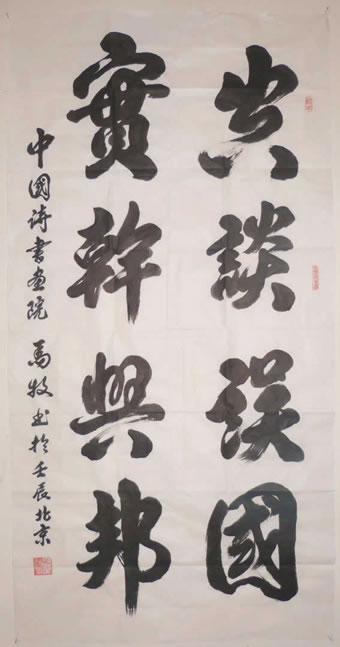 空談誤國
實幹興邦
中國詩書畫院 馬牧书於壬辰北京